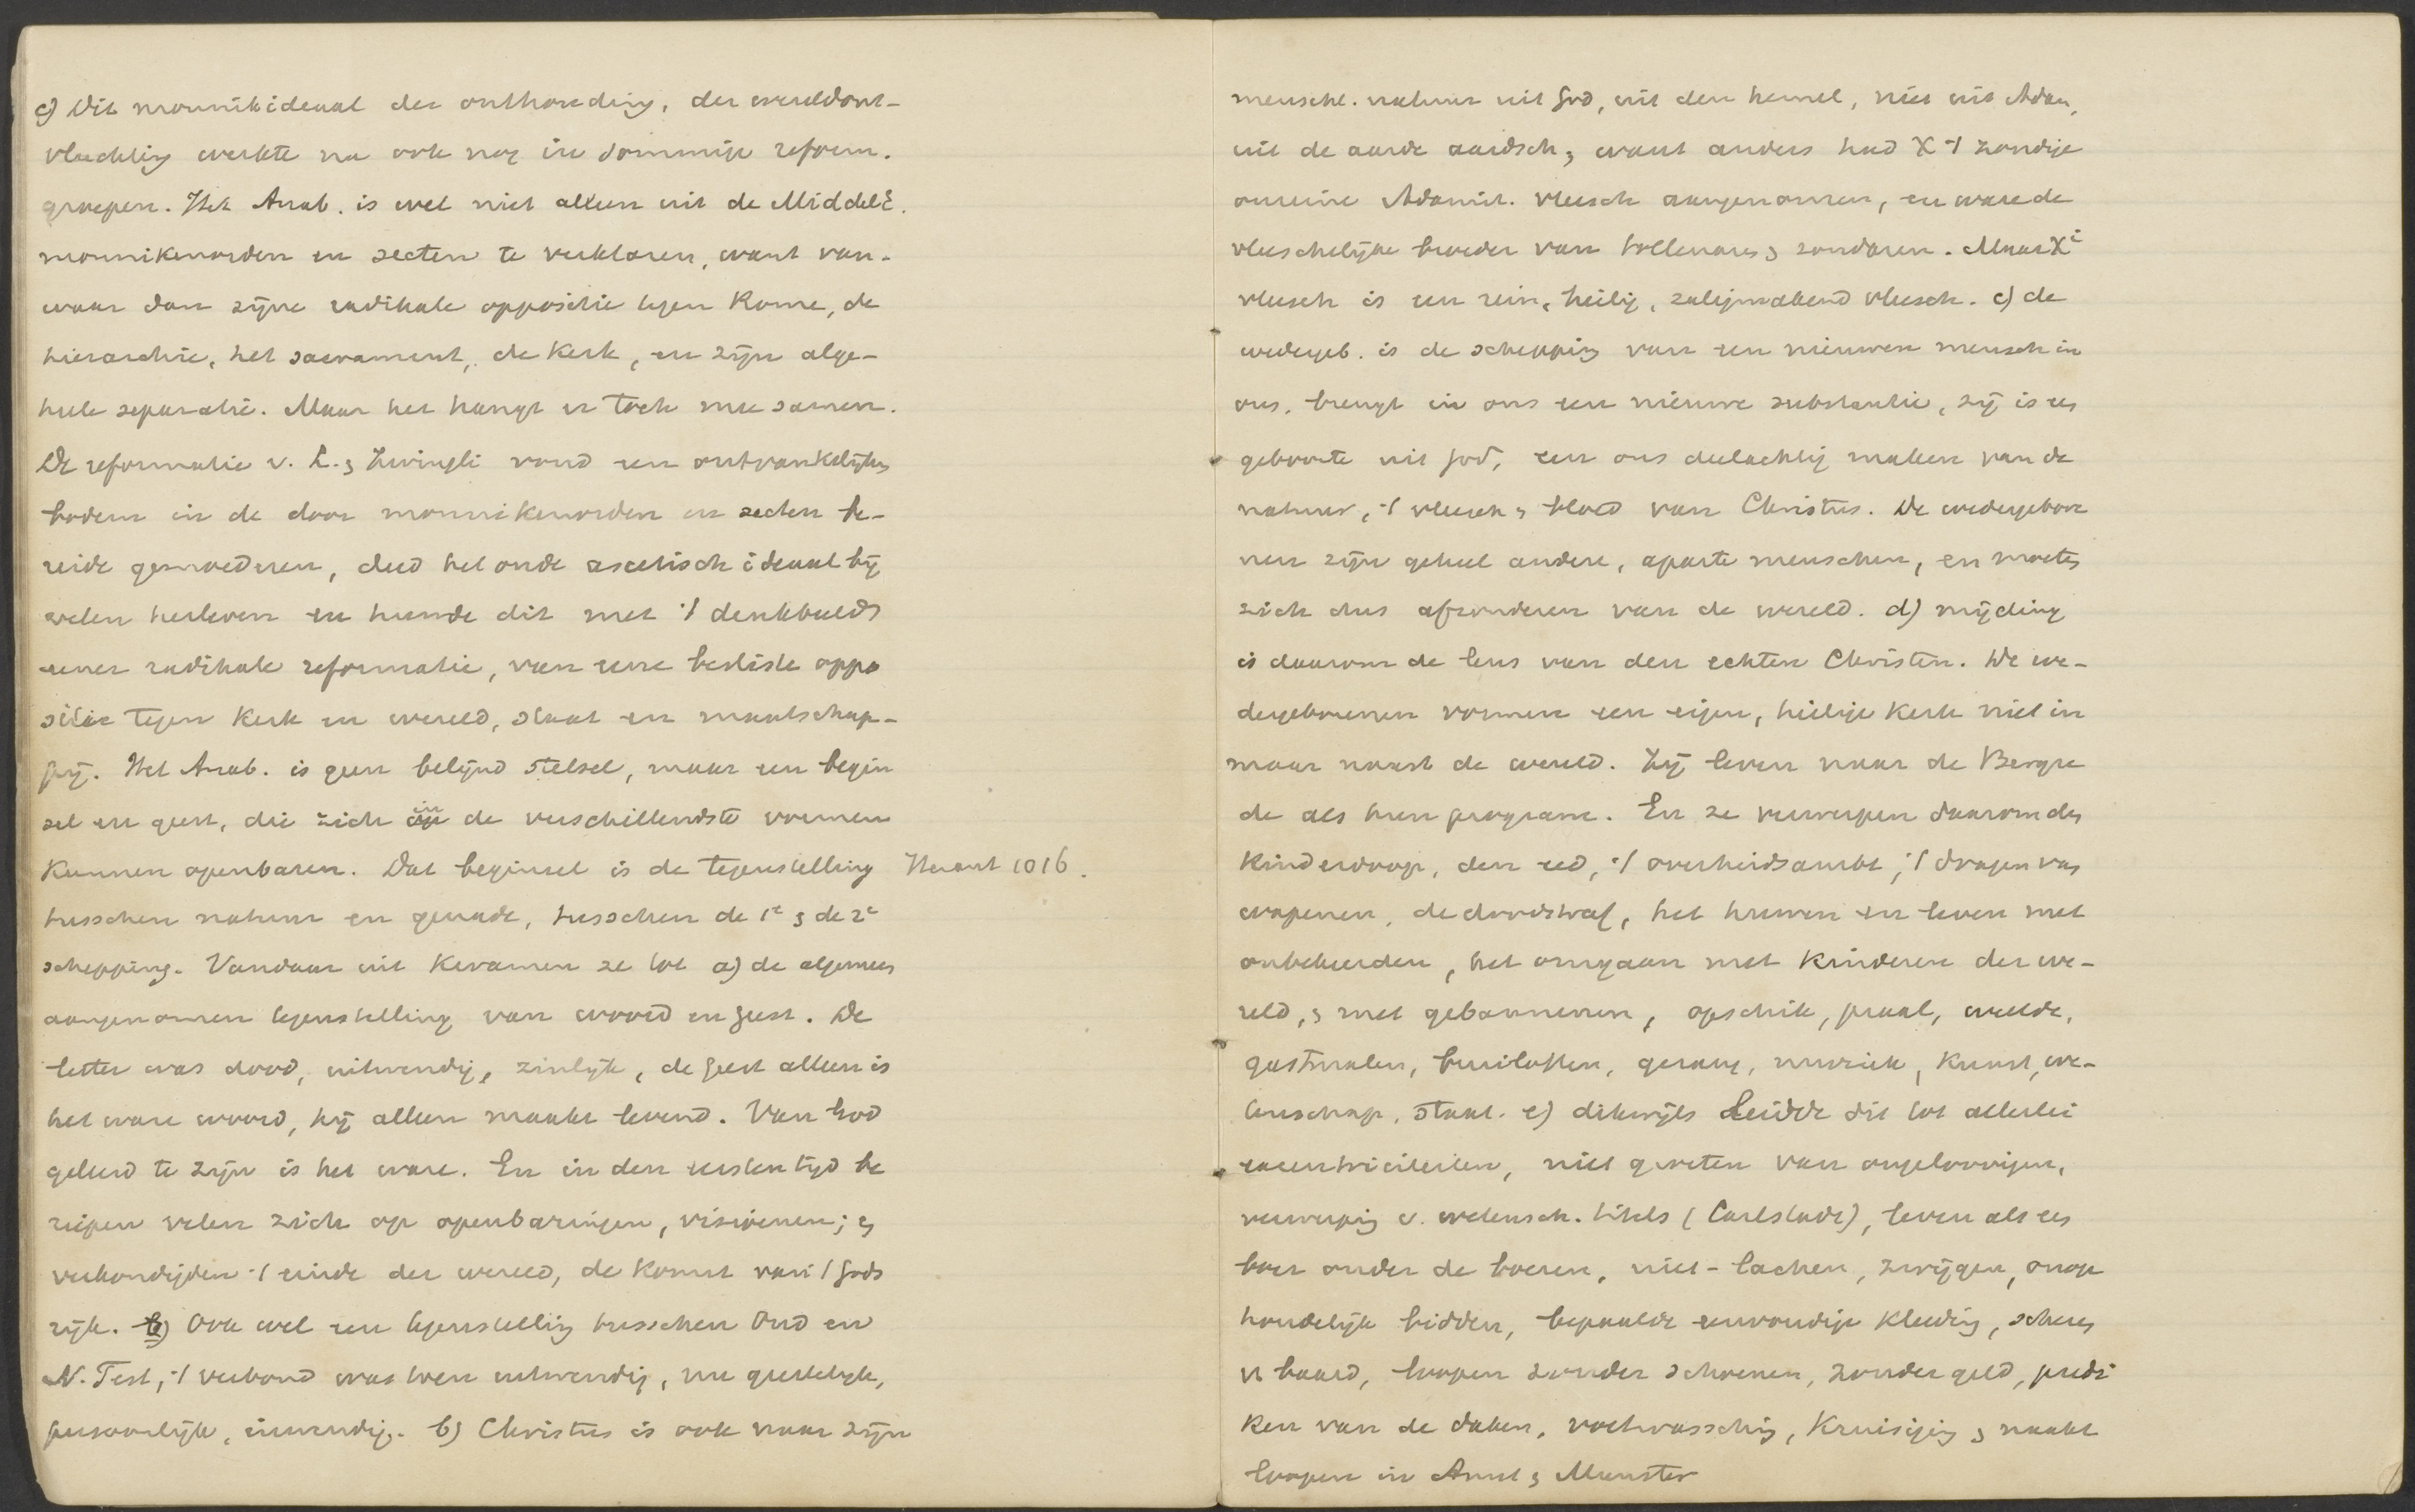 c) Dit monnikideaal der onthouding, der wereldont-
vluchting werkte na ook nog in sommige reform.
groepen. Het Anab. is wel niet alleen uit de Middele.
monnikenorden en secten te verklaren, want van-
waar dan zijne radikale oppositie tegen Rome, de
hierarchie, het sacrament, de Kerk, en zijn alge-
heele separatie. Maar het hangt er toch mee samen.
De reformatie v. L. & Zwingli vond een ontvankelijken
bodem in de door monnikenorden en secten be-
reide gemoederen, deed het oude ascetisch ideaal bij
velen herleven en huwde dit met 't denkbeeld
eener radikale reformatie, van eene besliste oppo
sitie tegen Kerk en wereld, staat en maatschap-
pij. Het Anab. is geen belijnd stelsel, maar een begin
sel en geest, die zich in de verschillendste vormen
kunnen openbaren. Dat beginsel is de tegenstelling Heraut 1016.
tusschen natuur en genade, tusschen de 1e & de 2e
schepping. Vandaar uit kwamen ze tot a) de algemeen
aangenomen tegenstelling van woord en geest. De
letter was dood, uitwendig, zinlijk, de geest alleen is
het ware woord, hij alleen maakt levend. Van God
geleerd te zijn is het ware. En in den eersten tijd be
riepen velen zich op openbaringen, visioenen; &
verkondigden 't einde der wereld, de komst van 't gods
rijk. b) Ook wel een tegenstelling tusschen Oud en
N. Test, 't verbond was toen uitwendig, nu geestelijk,
persoonlijk, inwendig. b) Christus is ook naar zijn
menschl. natuur uit God, uit den hemel, niet uit Adam,
uit de aarde aardsch, want anders had X 't zondige
onreine Adamit. vleesch aangenomen, en ware de
vleeschelijke broeder van tollenaren & zondaren. Maar X's
vleesch is een rein, heilig, zaligmakend vleesch. c) de
wedergeb. is de schepping van een nieuwen mensch in
ons, brengt in ons een nieuwe substantie, zij is een
geboorte uit God, een ons deelachtig maken van de
natuur, 't vleesch & bloed van Christus. De wedergebore
nen zijn geheel andere, aparte menschen, en moeten
zich dus afzonderen van de wereld. d) mijding
is daarom de leus van den echten Christen. De we-
dergeborenen vormen een eigen, heilige kerk niet in
maar naast de wereld. Zij leven naar de Bergre
de als hun program. En ze verwerpen daarom den
Kinderdoop, den eed, 't overheidsambt, 't dragen van
wapenen, de doodstraf, het huwen en leven met
onbekeerden, het omgaan met kinderen der we-
reld, & met gebannenen, opschik, praal, weelde,
gastmalen, bruiloften, gezang, muziek, kunst, we-
tenschap, staat. e) dikwijls leidde dit tot allerlei
excentriciteiten, niet groeten van ongeloovigen,
verwerping v. wetensch. titels (Carlstadt), leven als een
boer onder de boeren, niet-lachen, zwijgen, onop
houdelijk bidden, bepaalde eenvoudige kleeding, scheren
v baard, loopen zonder schoenen, zonder geld, predi
ken van de daken, voetwassching, kruisiging & naakt
loopen in Amst & Munster